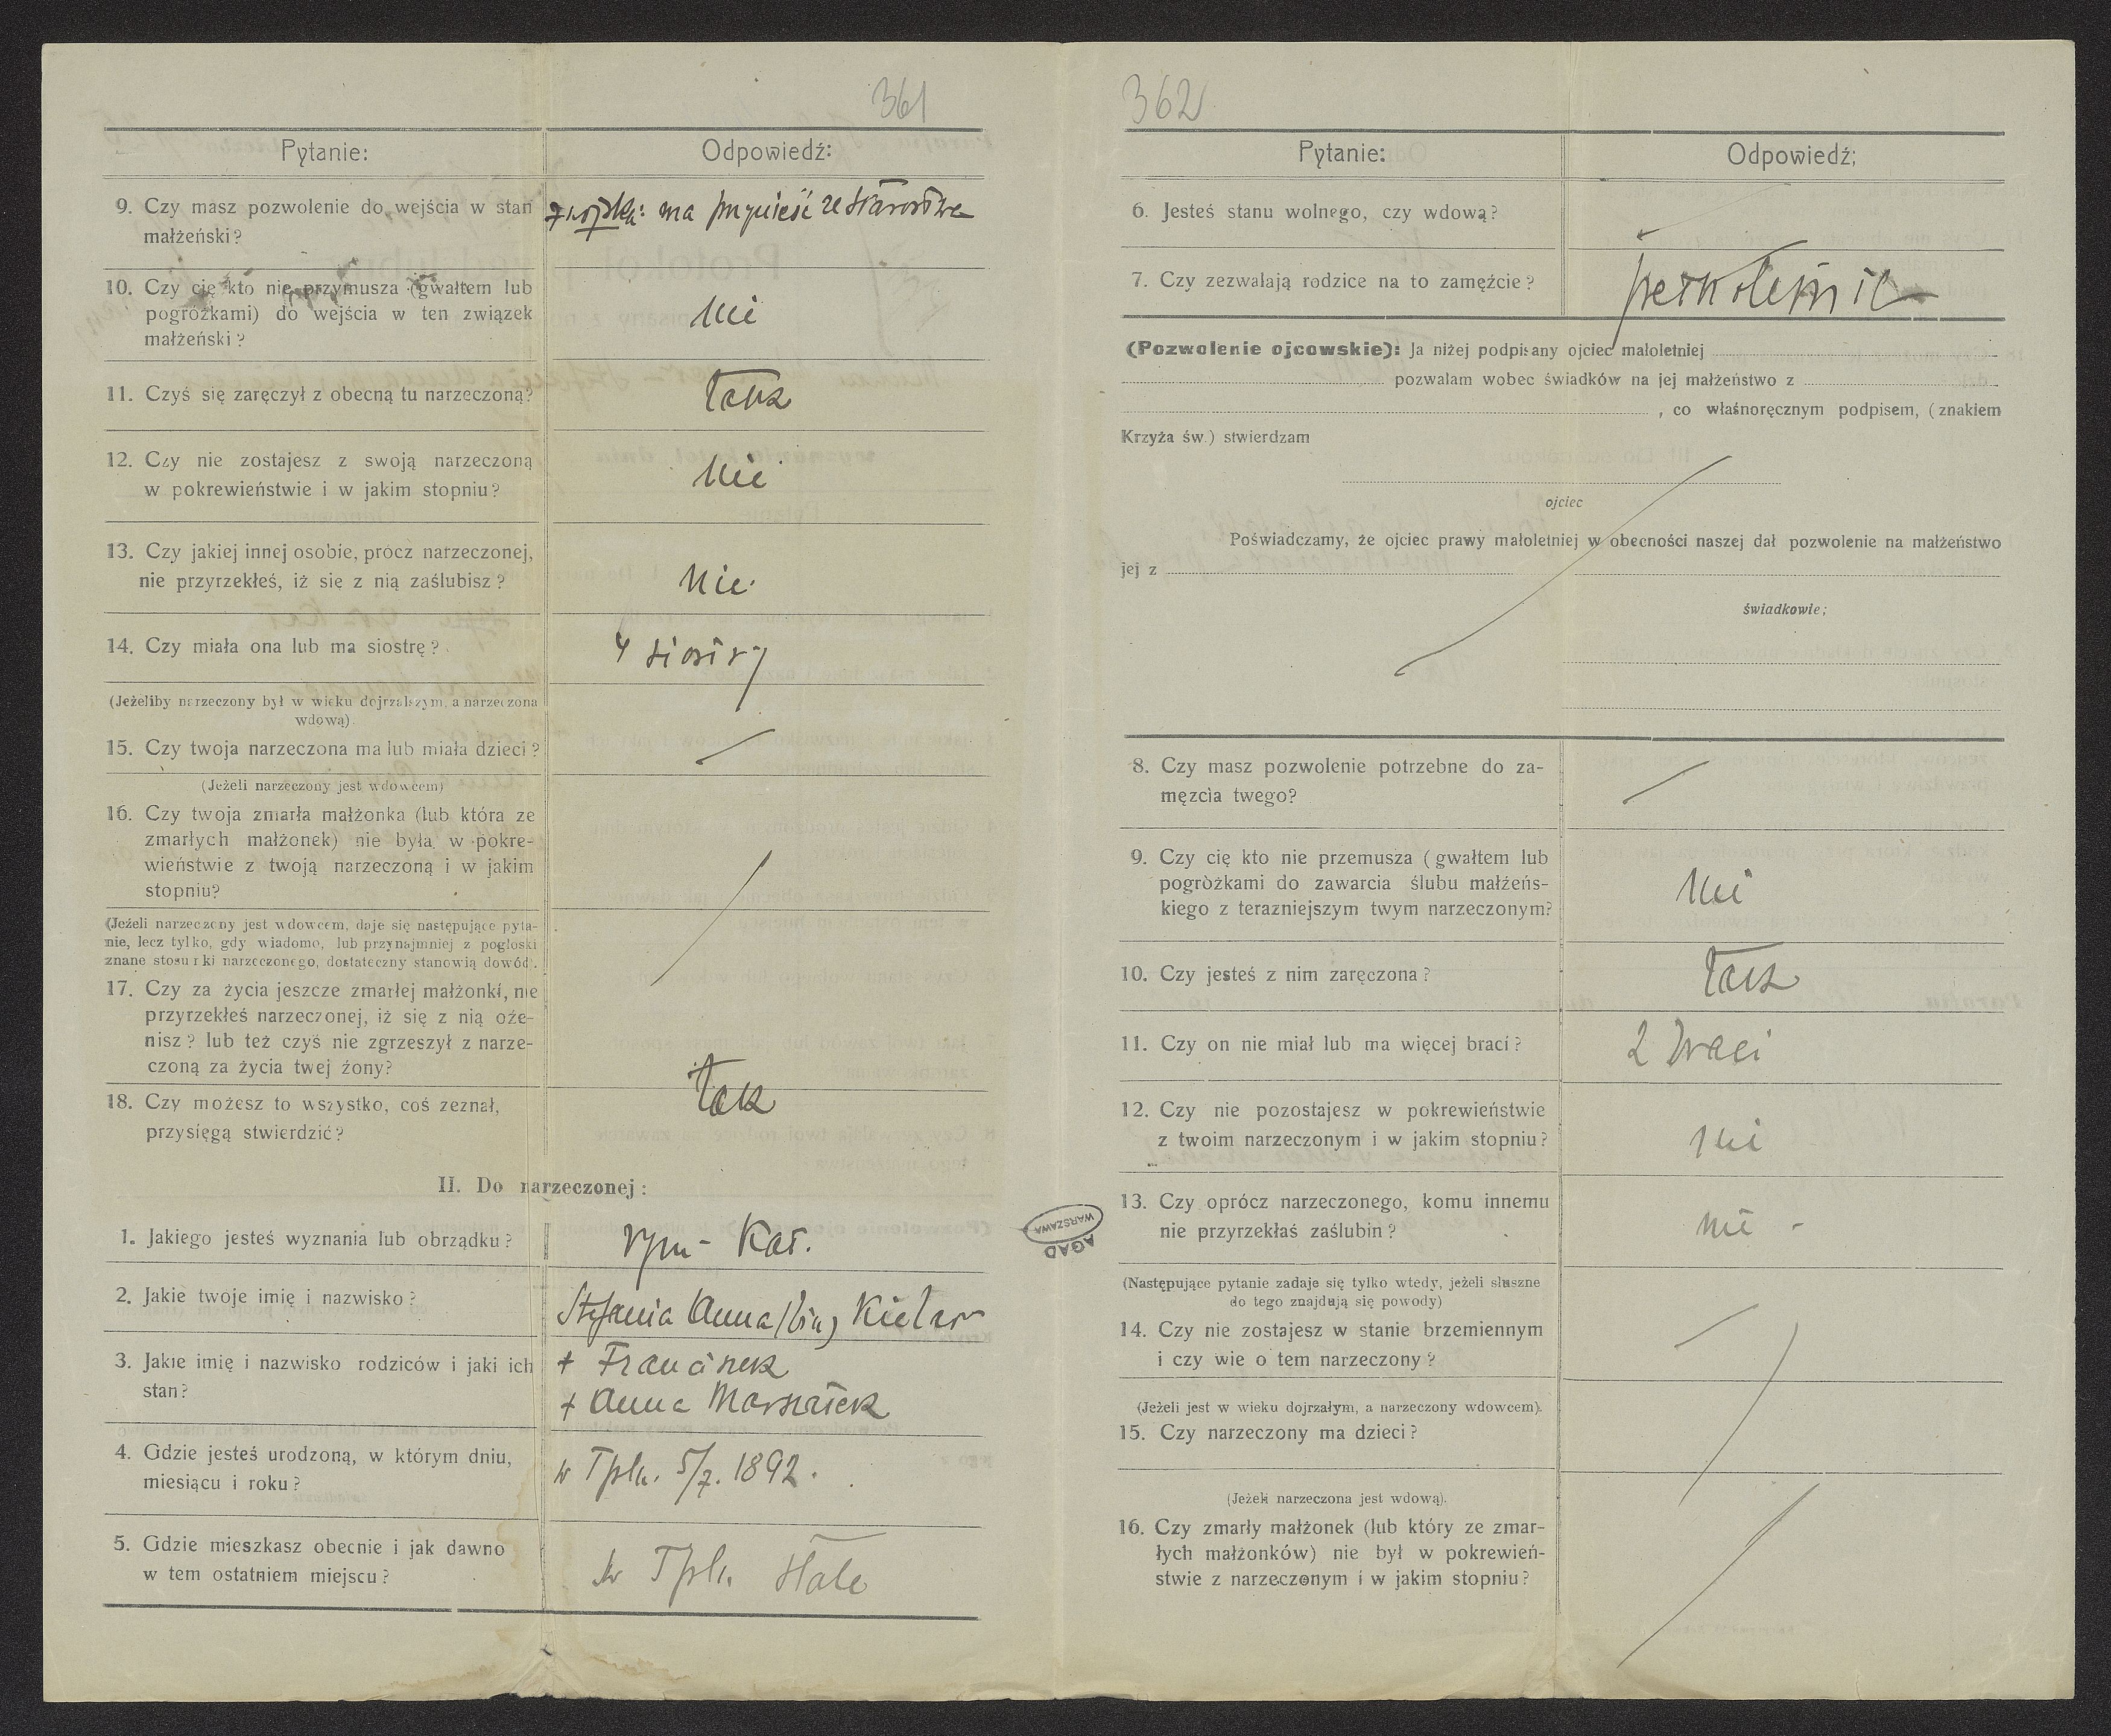 361
Pytanie:
Odpowiedź:
9. Czy masz pozwolenie do wejścia w stan
małżeński?
z wojsk: ma przynieść ze starostwa
10. Czy cię kto nie przymusza (gwałtem lub
pogróżkami) do wejścia w ten związek
małżeński?
nie
11. Czyś się zaręczył z obecną tu narzeczoną?
tak
12. Czy nie zostajesz z swoją narzeczoną
w pokrewieństwie i w jakim stopniu?
nie
13. Czy jakiej innej osobie, prócz narzeczonej,
nie przyrzekłeś, iż się z nią zaślubisz?
nie
14. Czy miała ona lub ma siostrę?
4 siostry
(Jeżeliby narzeczony był w wieku dojrzalszym, a narzeczona
wdową).
15. Czy twoja narzeczona ma lub miała dzieci?
(Jeżeli narzeczony jest wdowcem)
16. Czy twoja zmarła małżonka (lub która ze
zmarłych małżonek) nie była w pokre-
wieństwie z twoją narzeczoną i w jakim
stopniu?
(Jeżeli narzeczony jest wdowcem, daje się następujące pyta-
nie, lecz tylko, gdy wiadomo, lub przynajmniej z pogłoski
znane stosunki narzeczonego, dostateczny stanowią dowód).
17. Czy za życia jeszcze zmarłej małżonki, nie
przyrzekłeś narzeczonej, iż się z nią oże-
nisz? lub też czyś nie zgrzeszył z narze-
czoną za życia twej żony?
18. Czy możesz to wszystko, coś zeznał,
przysięgą stwierdzić?
tak
II. Do narzeczonej:
1. Jakiego jesteś wyznania lub obrządku?
rzym - kat.
2. Jakie twoje imię i nazwisko?
Stefania Anna (bin) Kielar
3. Jakie imię i nazwisko rodziców i jaki ich
stan?
+ Franciszek
+ Anna Marszałek
4. Gdzie jesteś urodzoną, w którym dniu,
miesiącu i roku?
w Tpln. 5/7. 1892.
5. Gdzie mieszkasz obecnie i jak dawno
w tem ostatniem miejscu?
w Tpln. stale
362
Pytanie:
Odpowiedź;
6. Jesteś stanu wolnego, czy wdową?
7. Czy zezwalają rodzice na to zamęźcie?
pełnoletnia
(Pozwolenie ojcowskie): Ja niżej podpisany ojciec małoletniej
pozwalam wobec świadków na jej małżeństwo z
, co właśnoręcznym podpisem, (znakiem
Krzyża św.) stwierdzam
ojciec
Poświadczamy, że ojciec prawy małoletniej w obecności naszej dał pozwolenie na małżeństwo
jej z
świadkowie;
8. Czy masz pozwolenie potrzebne do za-
męzcia twego?
9. Czy cię kto nie przemusza (gwałtem lub
pogròżkami do zawarcia ślubu małźeńs-
kiego z terazniejszym twym narzeczonym?
nie
10. Czy jesteś z nim zaręczona?
tak
11. Czy on nie miał lub ma więcej braci?
2 braci
12. Czy nie pozostajesz w pokrewieństwie
z twoim narzeczonym i w jakim stopniu?
nie
13. Czy oprócz narzeczonego, komu innemu
nie przyrzekłaś zaślubin?
nie -
AGAD
WARSZAWA
(Następujące pytanie zadaje się tylko wtedy, jeżeli słuszne
do tego znajdują się powody)
14. Czy nie zostajesz w stanie brzemiennym
i czy wie o tem narzeczony?
(Jeżeli jest w wieku dojrzałym, a narzeczony wdowcem).
15. Czy narzeczony ma dzieci?
(Jeżeli narzeczona jest wdową).
16. Czy zmarły małżonek (lub który ze zmar-
łych małżonków) nie był w pokrewień-
stwie z narzeczonym i w jakim stopniu?